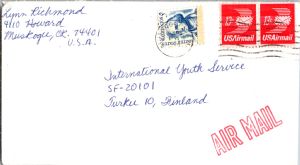 Lynn Richmond
4110 Howard
Muskogee, OK. 74401
U.S.A.
USAirmail
USAirmail
International Youth Service
SF-20101
Turku 10, Finland
AIR MAIL